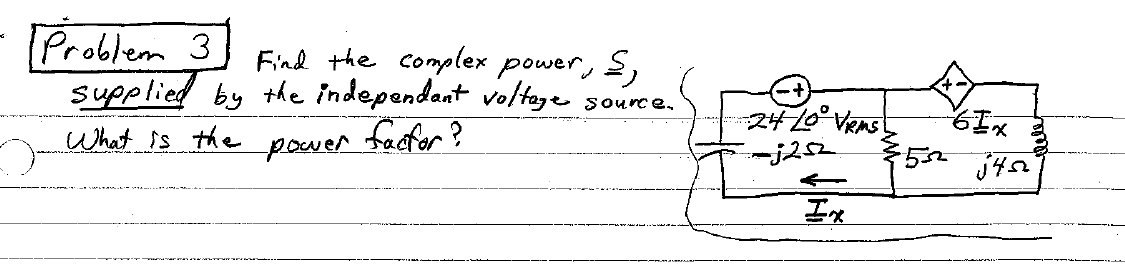 Problem 3 Find the complex power, S,
supplied by the independant voltage source.
What is the power factor?
- + + -
24 ∠0° VRMS 6Ix
-j2Ω 5Ω j4Ω
Ix